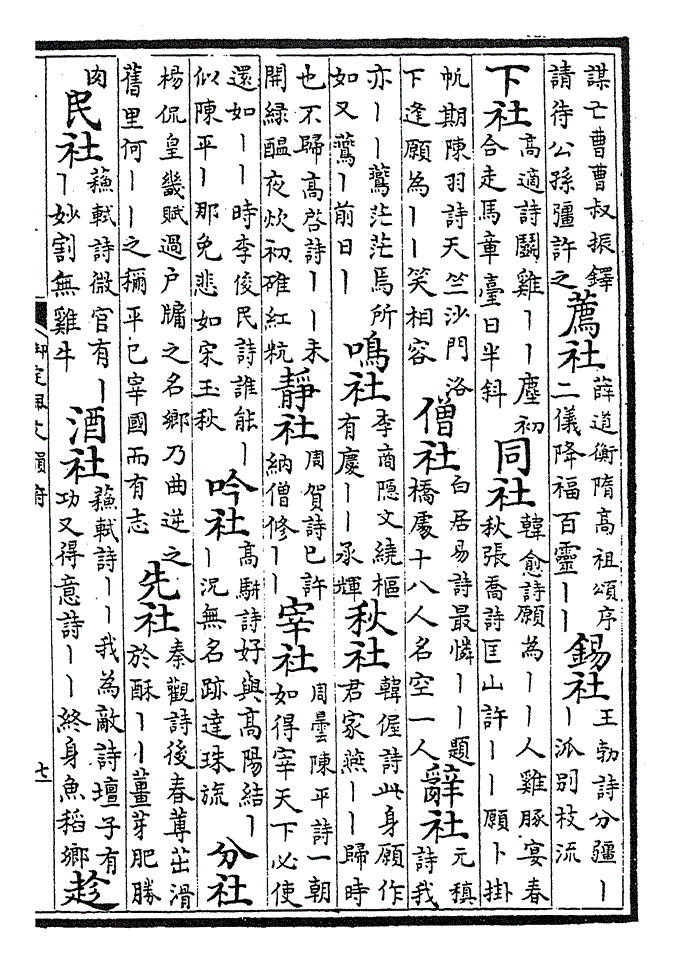 謀亡曹曹叔振鐸
請待公孫彊許之
薦社
薛道衡隋高祖頌序
二儀降福百靈丨丨
錫社
王勃詩分疆丨
丨派別枝流
下社
高適詩鬬雞丨丨塵初
合走馬章臺日半斜
同社
韓愈詩願為丨丨人雞豚宴春
秋張喬詩匡山許丨丨願卜掛
帆期陳羽詩天竺沙門洛
下逢願為丨丨笑相容
僧社
白居易詩最憐丨丨題
橋處十八人名空一人
辭社
元稹
詩我
亦丨丨鷰茫茫焉所
如又鷰丨前日丨
鳴社
李商隱文繞樞
有慶丨丨承輝
秋社
韓偓詩此身願作
君家燕丨丨歸時
也不歸高啓詩丨丨未
開緑醖夜炊初碓紅秔
靜社
周賀詩已許
納僧修丨丨
宰社
周曇陳平詩一朝
如得宰天下必使
還如丨丨時李俊民詩誰能丨
似陳平丨那免悲如宋玉秋
吟社
高駢詩好與高陽結丨
丨況無名跡達珠旒
分社
楊侃皇畿賦過户牖之名鄉乃曲逆之
舊里何丨丨之稱平已宰國而有志
先社
秦觀詩後春蓴茁滑
於酥丨丨薑芽肥勝
肉
民社
蘇軾詩微官有丨
丨妙割無雞牛
酒社
蘇軾詩丨丨我為敵詩壇子有
功又得意詩丨丨終身魚稻鄉
趁
御定佩文韻府
七